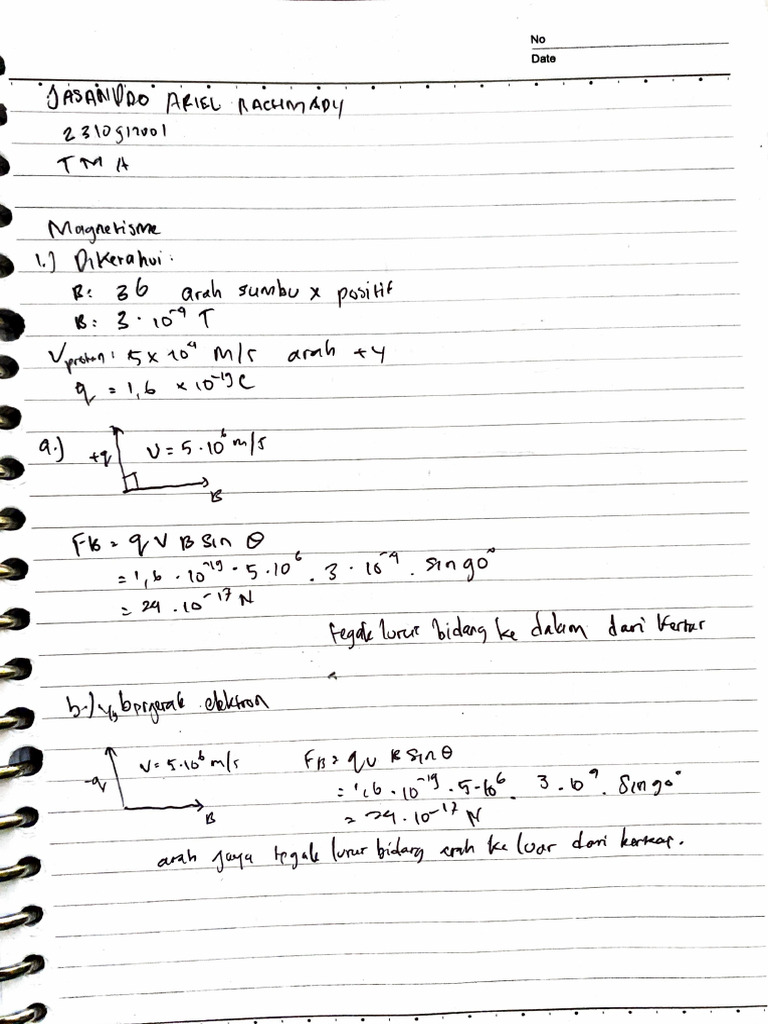 No
Date
JASANDRO ARIEL RACHMADY
2310917001
TMA
Magnetisme
1.) Diketahui:
B: 3G arah sumbu x positif
B: 3 · 10⁻⁴ T
Vproton: 5 x 10⁶ M/s arah +y
q = 1,6 x 10⁻¹⁹ C
a.) +q V = 5 · 10⁶ m/s
B
FB = q V B Sin θ
= 1,6 · 10⁻¹⁹ · 5 · 10⁶ . 3 · 10⁻⁴ . sin 90°
= 24 . 10⁻¹⁷ N
tegak lurus bidang ke dalam dari kertas
b.) yg bergerak elektron
-q V = 5·10⁶ m/s FB = q v B Sin θ
B = 1,6 · 10⁻¹⁹ · 5·10⁶ . 3 · 10 . Sin 90°
= 24 . 10⁻¹⁷ N
arah gaya tegak lurus bidang arah ke luar dari kertas.